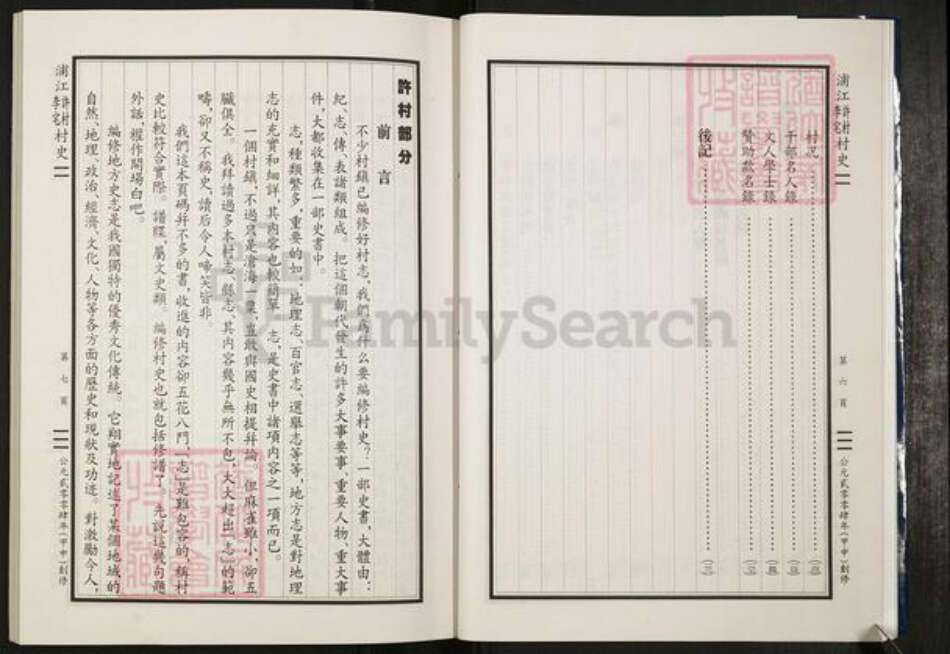 浦江許村李宅村史
村況
干部名人錄
文人學士錄
贊助款名錄
後記
第六頁
公元貳零零肆年(甲申)創修
許村部分
前言
不少村鎮已編修好村志、我們爲什么要編修村史?一部史書,大體由:
紀、志、傳、表諸類組成。把這個朝代發生的許多大事要事、重要人物、重大事
件,大都收集在一部史書中。
志,種類繁多,重要的如:地理志、百官志、選舉志等等,地方志是對地理
志的充實和細詳,其内容也較簡單。志,是史書中諸項内容之一項而已。
一個村鎮,不過只是滄海一粟,豈敢與國史相提并論。但麻雀雖小,卻五
臟俱全。我拜讀過多本村志、縣志、其内容幾乎無所不包,大大超出「志」的範
疇,卻又不稱史,讀后令人啼笑皆非。
我們這本頁碼并不多的書,收進的内容卻五花八門,「志」是難包容的,稱村
史比較符合實際。譜牒,屬文史類。編修村史也就包括修譜了。先說這幾句題
外話,權作開場白吧。
編修地方史志是我國獨特的優秀文化傳統。它翔實地記述了某個地域的
自然、地理、政治、經濟、文化、人物等各方面的歷史和現狀及功迹。對激勵今人,
浦江許村李宅村史
第七頁
公元貳零零肆年(甲申)創修
FamilySearch